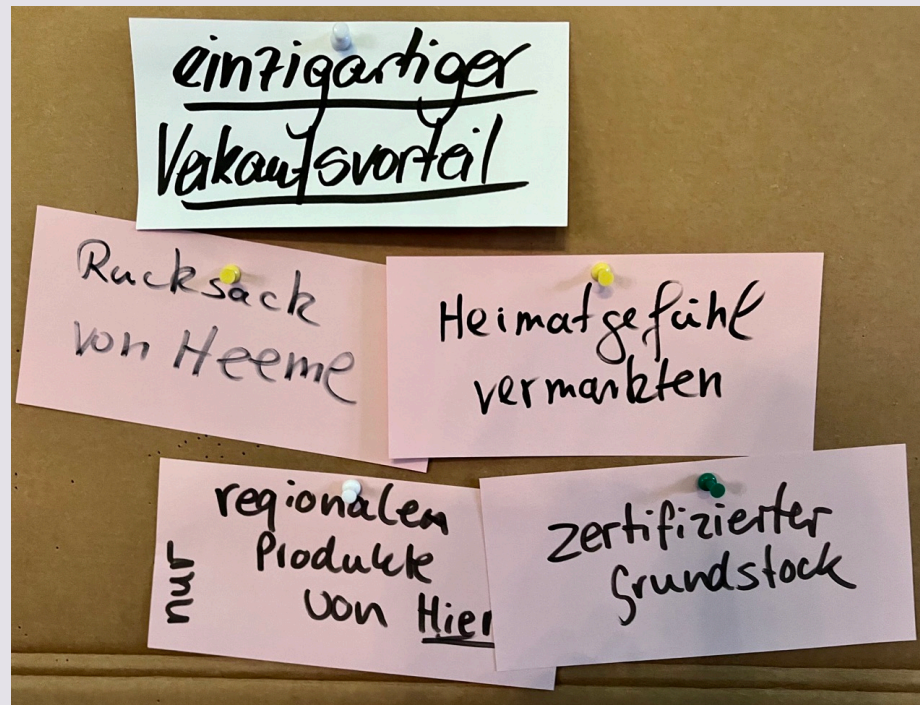 einzigartiger
Verkaufsvorteil
Rucksack
von Heeme
Heimatgefühl
vermarkten
nur
regionalen
Produkte
von Hier
zertifizierter
Grundstock